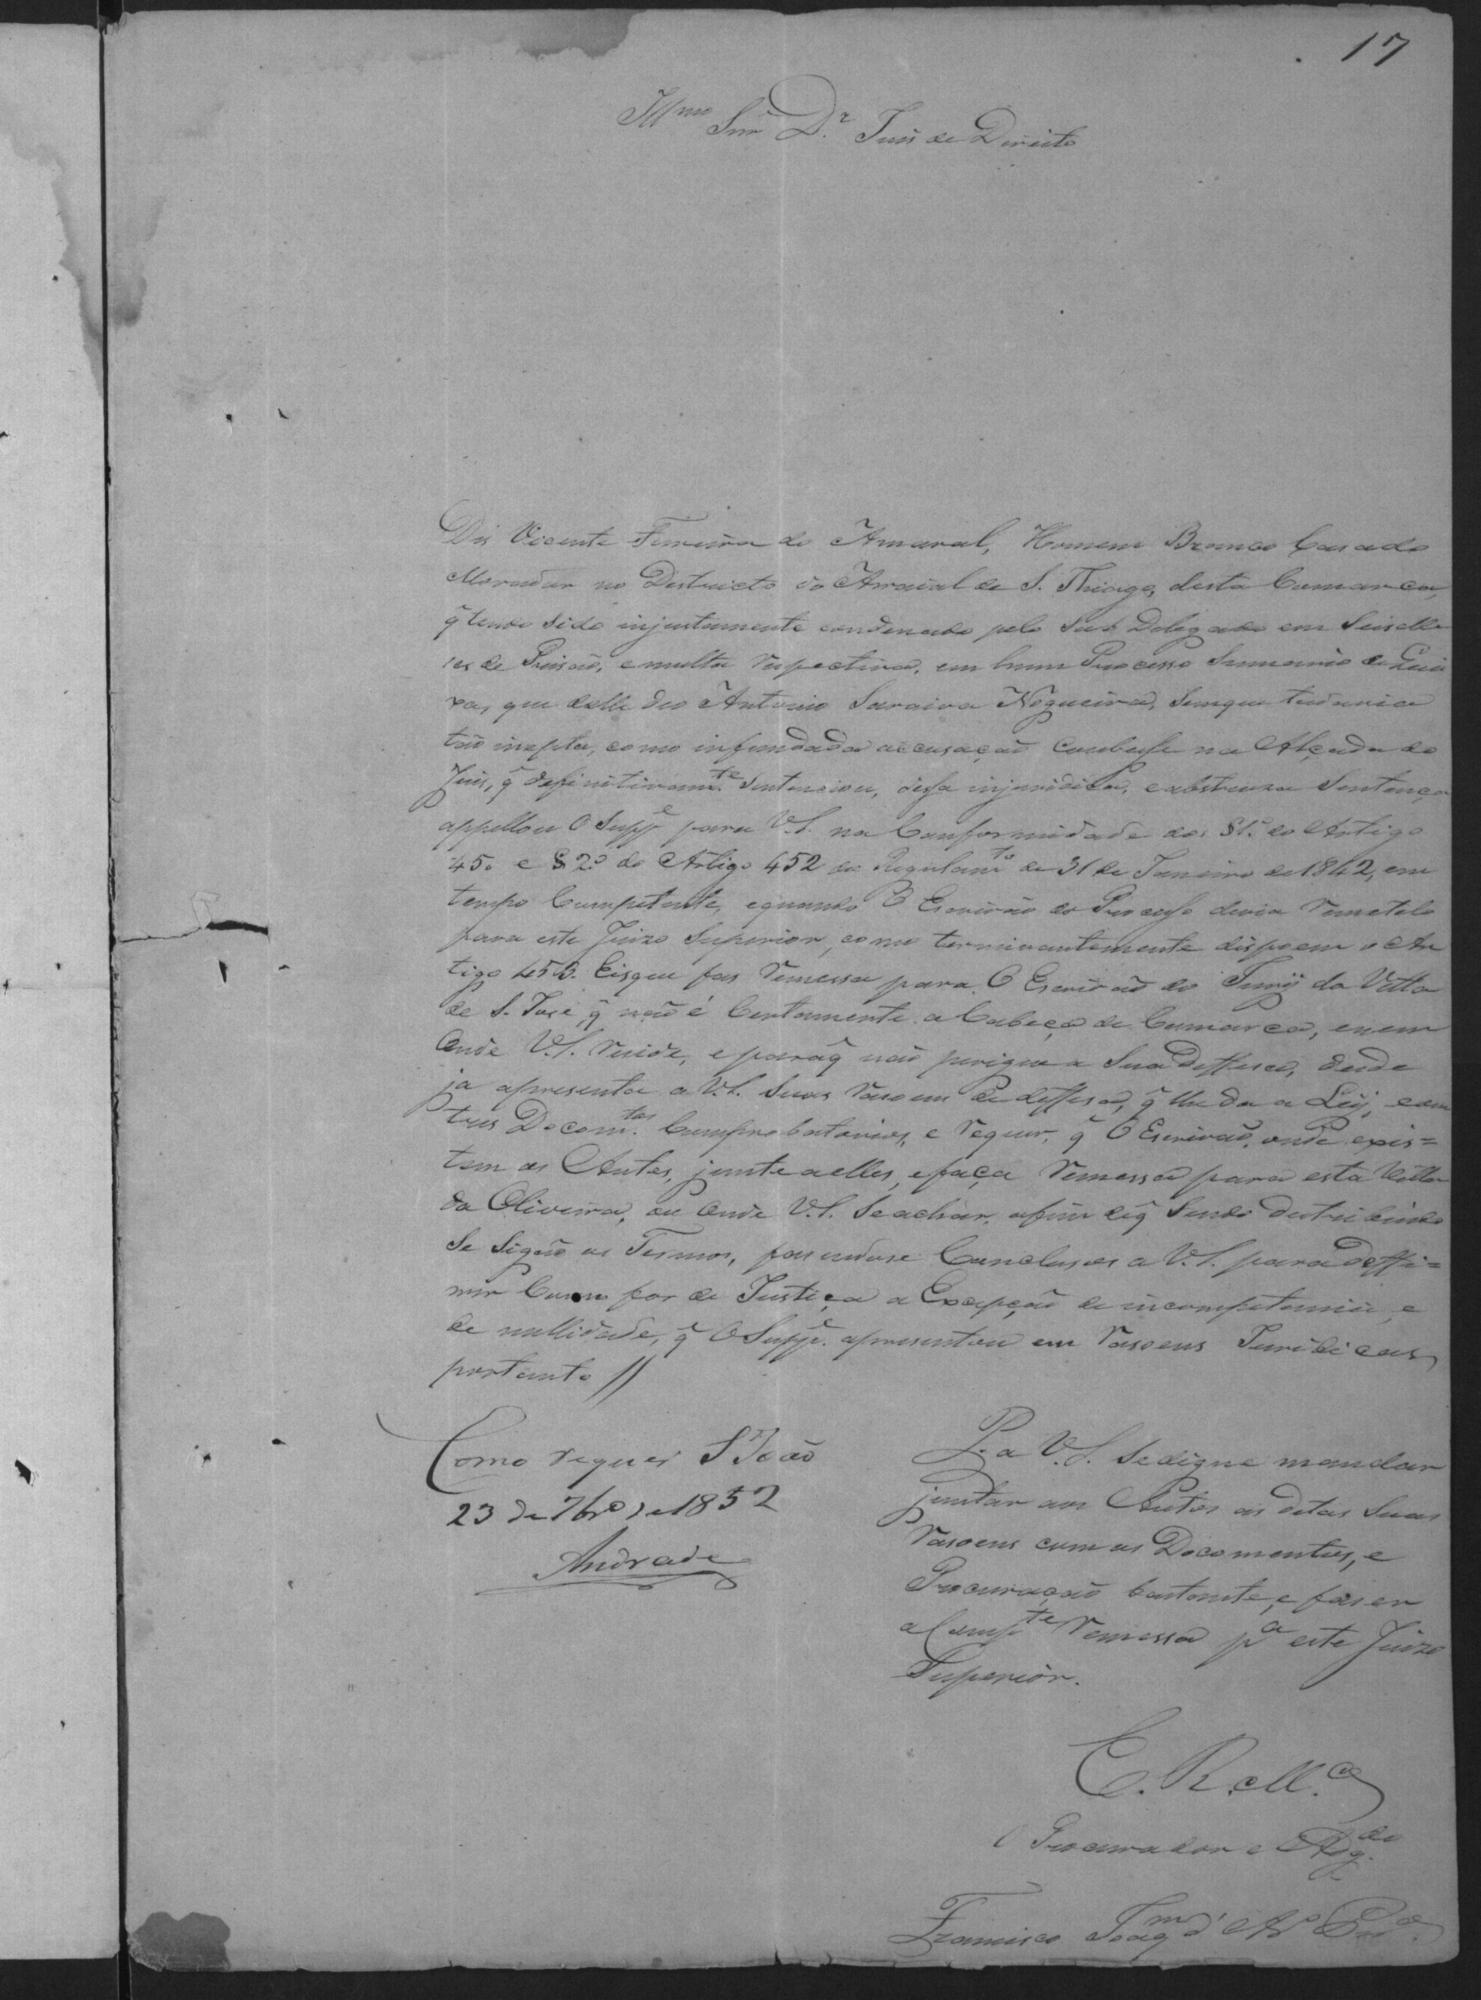 17
Illmo Snr Dr Juis de Direito
Dis Vicente Ferreira do Amaral, Homem Branco Casado
Morador no Districto do Arraial de S. Thiago, desta Comarca,
q̃ tendo sido injustamente condenado pelo Sub Delegado em Seis Me
ses de Prisão, e multa respectiva, em hum Processo Sumario de Quei
xa, que delle deo Antonio Saraiva Nogueira, Semque tudavia
tão inepta, como infundada accusação coubesse na Alçada do
Juis, q̃ definitivamte Sentenciou, dessa injuridica, e abstrusa Sentença
appellou O Suppe para V.S. na Conformidade dos § 1.º do Artigo
450 e § 2º do Artigo 452 do Regulamto de 31 de Janeiro de 1842, em
tempo Competente, equando O Escrivão do Processo devia remetelo
para este Juizo Superior, como terminantemente dispoem o Ar
tigo 455. Eisque fas remessa para O Escrivão do Jury da Villa
de S. José q̃ não é Certamente a Cabeça de Comarca, enem
Onde V.S. reside, e paraq̃ não perigue a Sua Deffesa, desde
ja apresenta a V.S. Suas rasoens de deffesa, q̃ lhe da a Ley, com
tres Documtos Comprobatorios, e requer, q̃ O Escrivão, onde exis=
tem os Autos, junte a elles, e faça remessa para esta Villa
da Oliveira, ou Onde V.S. Se achar, afim deq̃ Sendo destribuido
Se Sigão os Termos, fasendose Conclusos a V.S. para Deffi=
nir Como for de Justiça a Excepção de incompetencia, e
de nullidade, q̃ O Suppe. apresentou em rasoens Juridicas,
portanto //
Como requer S João
23 de 7bro de 1852
Andrade
P. a V.S. Se digne mandar
juntar aos Autos as ditas Suas
rasoens com os Documentos, e
Procuração bastante, e faser
a Compte remessa pa este Juizo
Superior.
E. R. Mce
O Procurador e Adgdo
Francisco Joaqm d'Aro